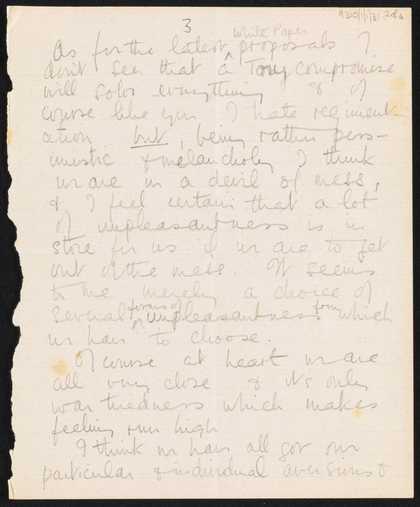 3
White Paper
As for the latest proposals I
don't see that a Tory compromise
will solve everything & of
course like you I hate regiment-
ation but, being rather pess-
imistic & melancholy I think
we are in a devil of mess,
& I feel certain that a lot
of unpleasantness is in
store for us if we are to get
out of the mess. It seems
to me merely a choice of
several forms of unpleasantness from which
we have to choose.
Of course at heart we are
all very close & it's only
war tiredness which makes
feeling run high
I think we have all got our
particular & individual aversions &